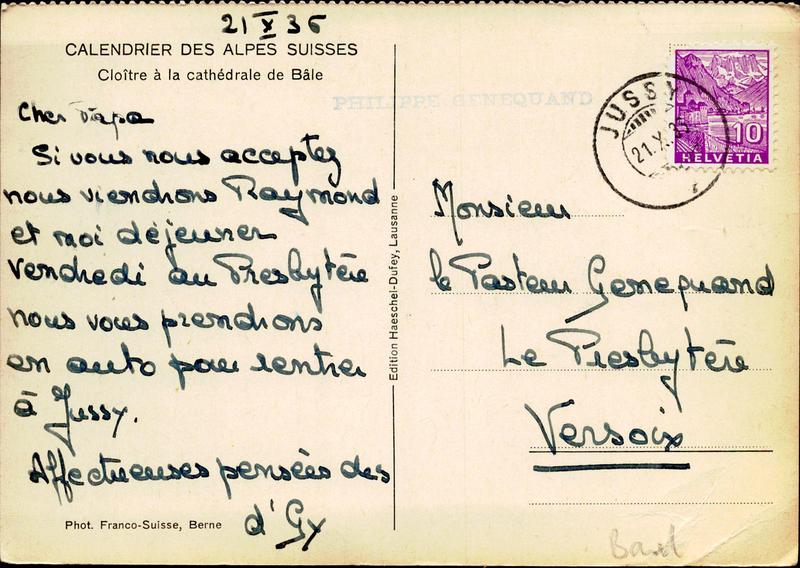 21 X 36
CALENDRIER DES ALPES SUISSES
Cloître à la cathédrale de Bâle
Cher Papa
Si vous nous acceptez
nous viendrons Raymond
et moi déjeuner
vendredi au Presbytère
nous vous prendrons
en auto pour rentrer
à Jussy.
Affectueuses pensées des
d'Gy
Phot. Franco-Suisse, Berne
Edition Haeschel-Dufey, Lausanne
PHILIPPE GENEQUAND
JUSSY
21.X.36
10
HELVETIA
Monsieur
le Pasteur Genequand
Le Presbytère
Versoix
Basel